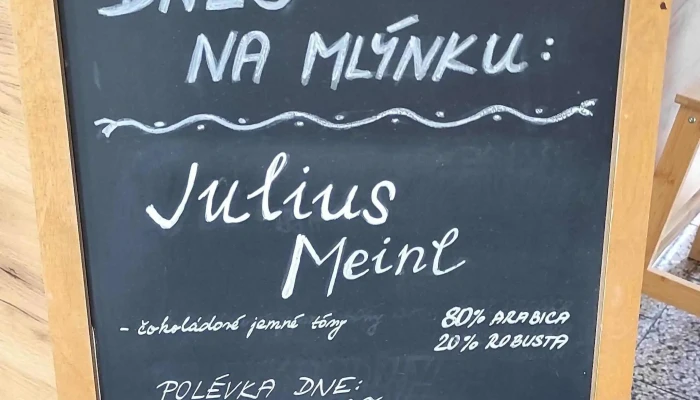 DNES
NA MLÝNKU:
Julius
Meinl
- čokoládové jemné tóny
80% ARABICA
20% ROBUSTA
POLÉVKA DNE: